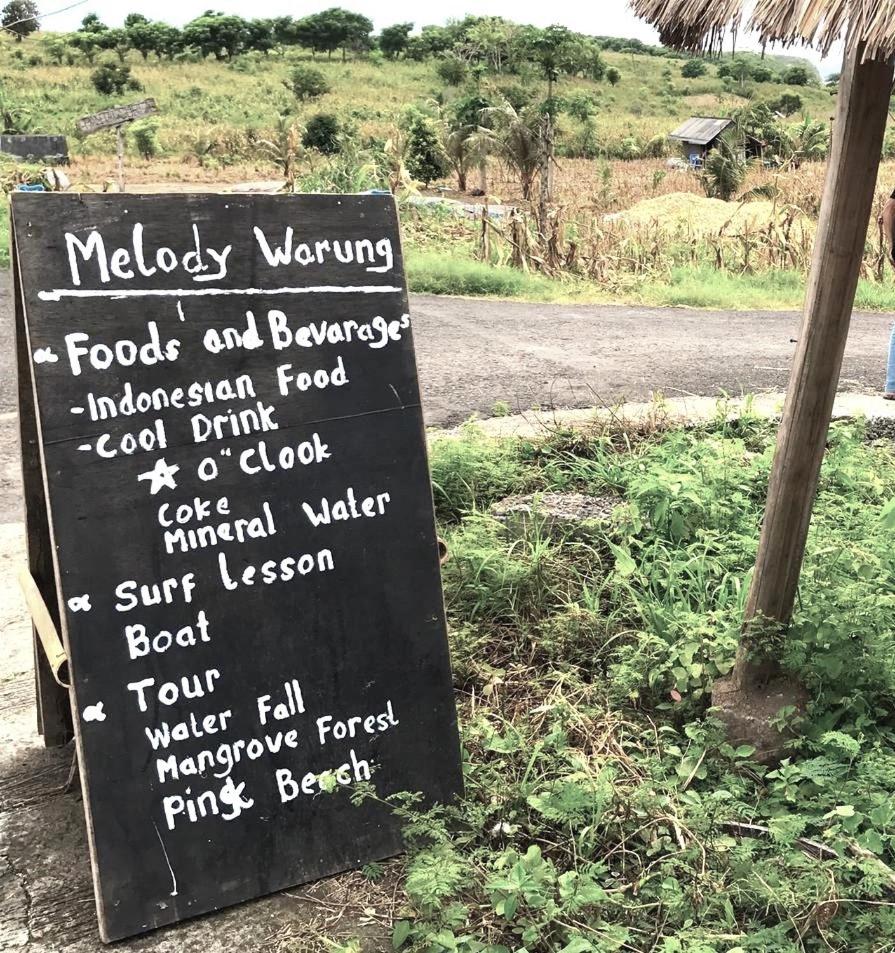 Melody Warung
Foods and Bevarages
-Indonesian Food
-Cool Drink
O"Clook
Coke
Mineral Water
Surf Lesson
Boat
Tour
Water Fall
Mangrove Forest
Pink Beach